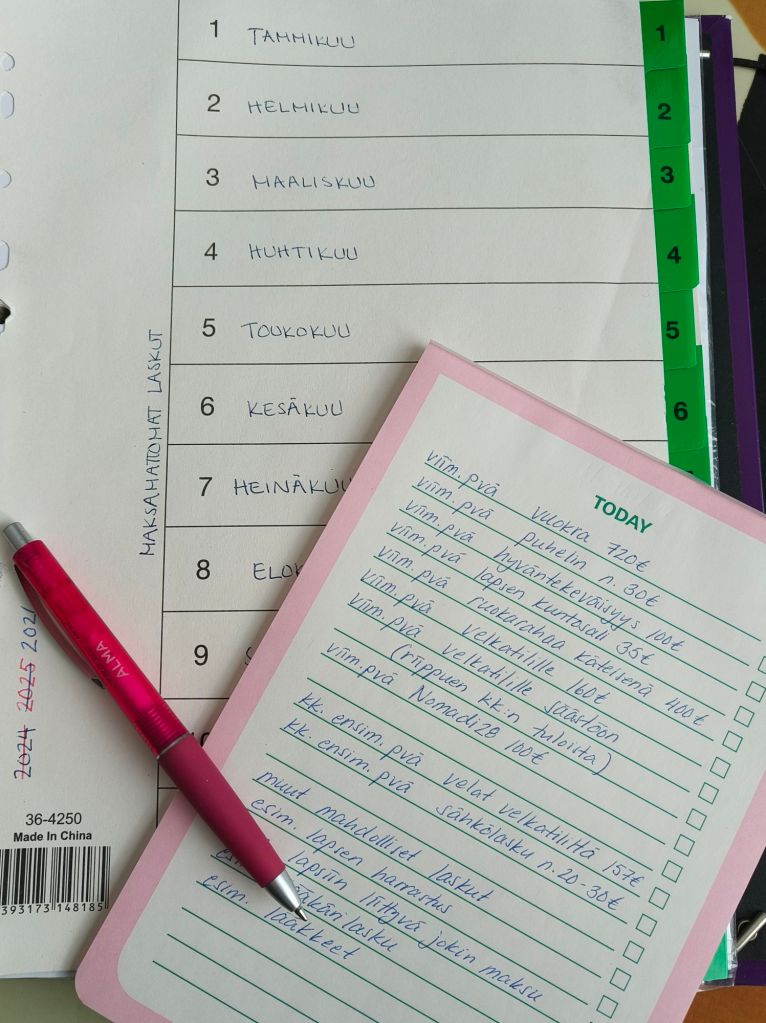 1 TAMMIKUU 1
2 HELMIKUU 2
3 MAALISKUU 3
4 HUHTIKUU 4
5 TOUKOKUU 5
6 KESÄKUU 6
7 HEINÄKUU
8
9
MAKSAMATTOMAT LASKUT
2024 2025 2026
36-4250
Made In China
393173 148185
ALMA
TODAY
viim. pvä vuokra 720€
viim. pvä puhelin n. 30€
viim. pvä hyväntekeväisyys 100€
viim. pvä lapsen kuntosali 35€
viim. pvä ruokarahaa käteisenä 400€
viim. pvä velkatilille 160€
viim. pvä velkatilille säästöön
(riippuen kk:n tuloista)
viim. pvä Nomadi28 100€
kk. ensim. pvä velat velkatililtä 157€
kk. ensim. pvä sähkölasku n. 20-30€
muut mahdolliset laskut
esim. lapsen harrastus
lapsiin liittyvä jokin maksu
esim. lääkkeet